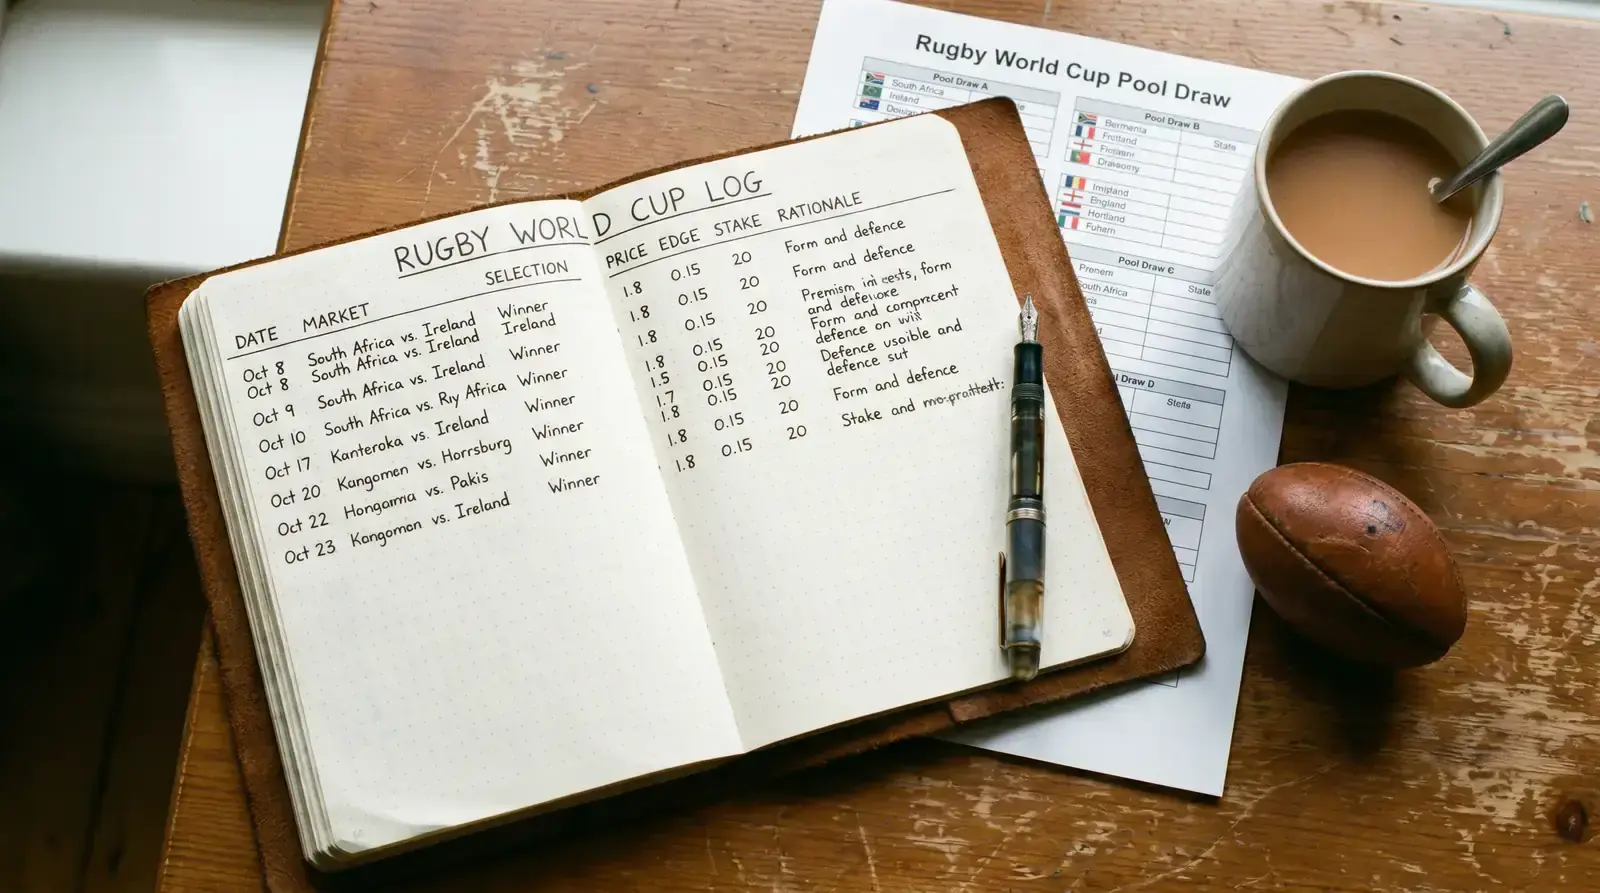 RUGBY WORLD CUP LOG
DATE MARKET SELECTION PRICE EDGE STAKE RATIONALE
Oct 8 South Africa vs. Ireland Winner 1.8 0.15 20 Form and defence
Oct 8 South Africa vs. Ireland Ireland 1.8 0.15 20 Form and defence
Oct 9 South Africa vs. Ireland Winner 1.8 0.15 20 Premism in form
and
Oct 10 South Africa vs. Rıy Africa Winner 1.8 0.15 20 Form and
defence on
Oct 17 Kanteroka vs. Ireland Winner 1.5 0.15 20 Defence usoible and
defence sut
Oct 20 Kangomen vs. Horrsburg Winner 1.7 0.15 20
Oct 22 Hongamıa vs. Pakis Winner 1.8 0.15 20 Form and defence
Oct 23 Kangomon vs. Ireland Winner 1.8 0.15 20 Stake and
Rugby World Cup Pool Draw
Pool Draw A
South Africa
Ireland
Pool Draw B
State
Bermenia
Frotland
Drawomy
England
Hortland
Fuhern
Pool Draw C
States
Prenem
South Africa
Draw D